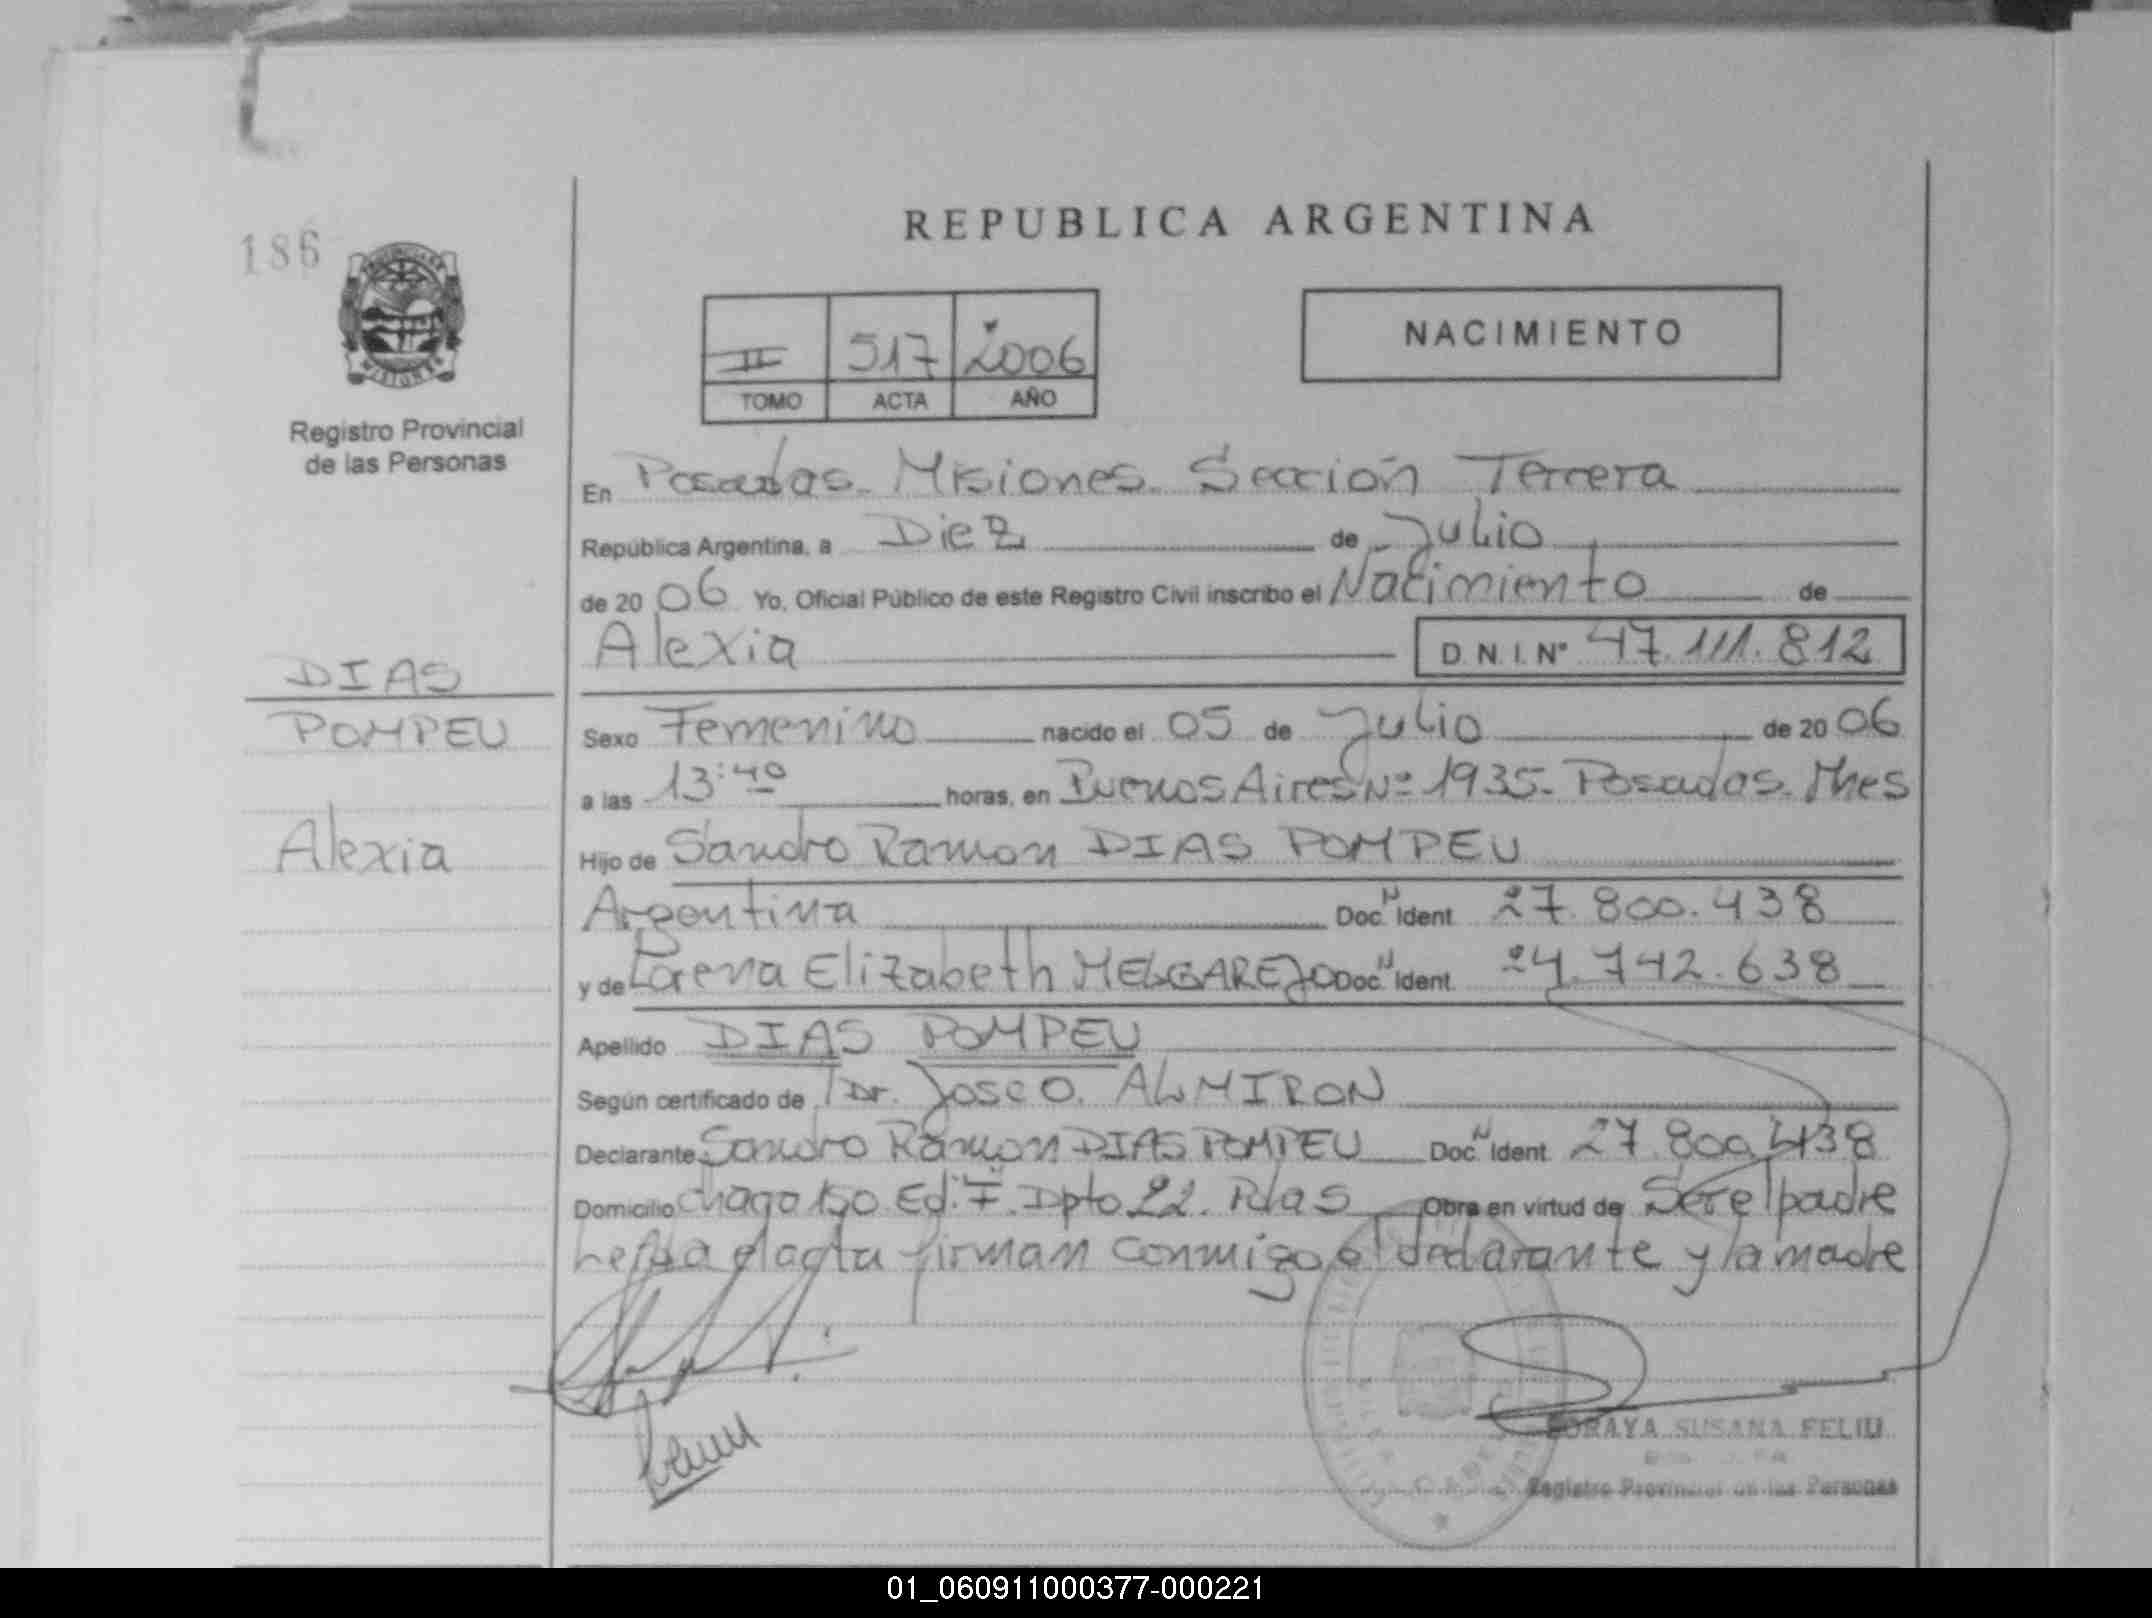 REPUBLICA ARGENTINA
186
NACIMIENTO
II 517 2006
TOMO ACTA AÑO
Registro Provincial
de las Personas
En Posadas. Misiones. Sección Tercera
República Argentina, a Diez de Julio
de 20 06 Yo, Oficial Público de este Registro Civil inscribo el Nacimiento de
Alexia D.N.I. Nº 47.111.812
DIAS
POMPEU
Alexia
Sexo Femenino nacido el 05 de Julio de 20 06
a las 13:40 horas, en Buenos Aires Nº 1935. Posadas. Mnes
Hijo de Sandro Ramon DIAS POMPEU
Argentina Doc. Ident. 27.800.438
y de Lorena Elizabeth MELGAREJO Doc. Ident. 24.742.638
Apellido DIAS POMPEU
Según certificado de Dr. Jose O. ALMIRON
Declarante Sandro Ramon DIAS POMPEU Doc. Ident. 27.800.438
Domicilio chaga 150 Ed. 7. Dpto 22. Pdas Obra en virtud de Ser el padre
Leída el acta firman conmigo el declarante y la madre
SORAYA SUSANA FELIU
Registro Provincial de las Personas
01_060911000377-000221